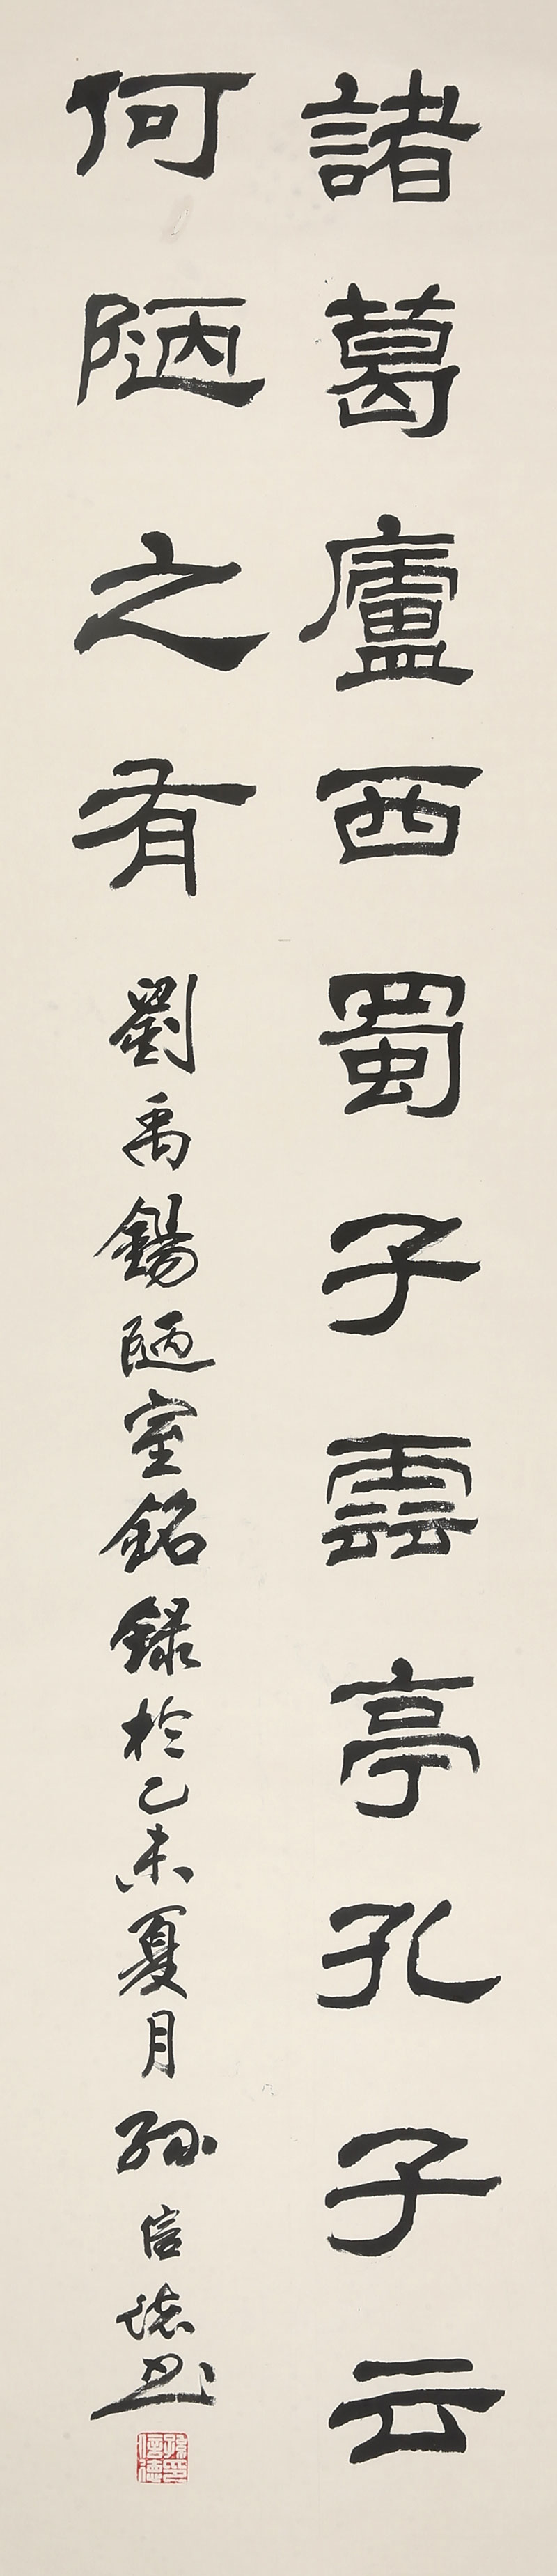 諸葛廬西蜀子雲亭孔子云
何陋之有劉禹錫陋室銘錄於乙未夏月孫信德書
孫信德印